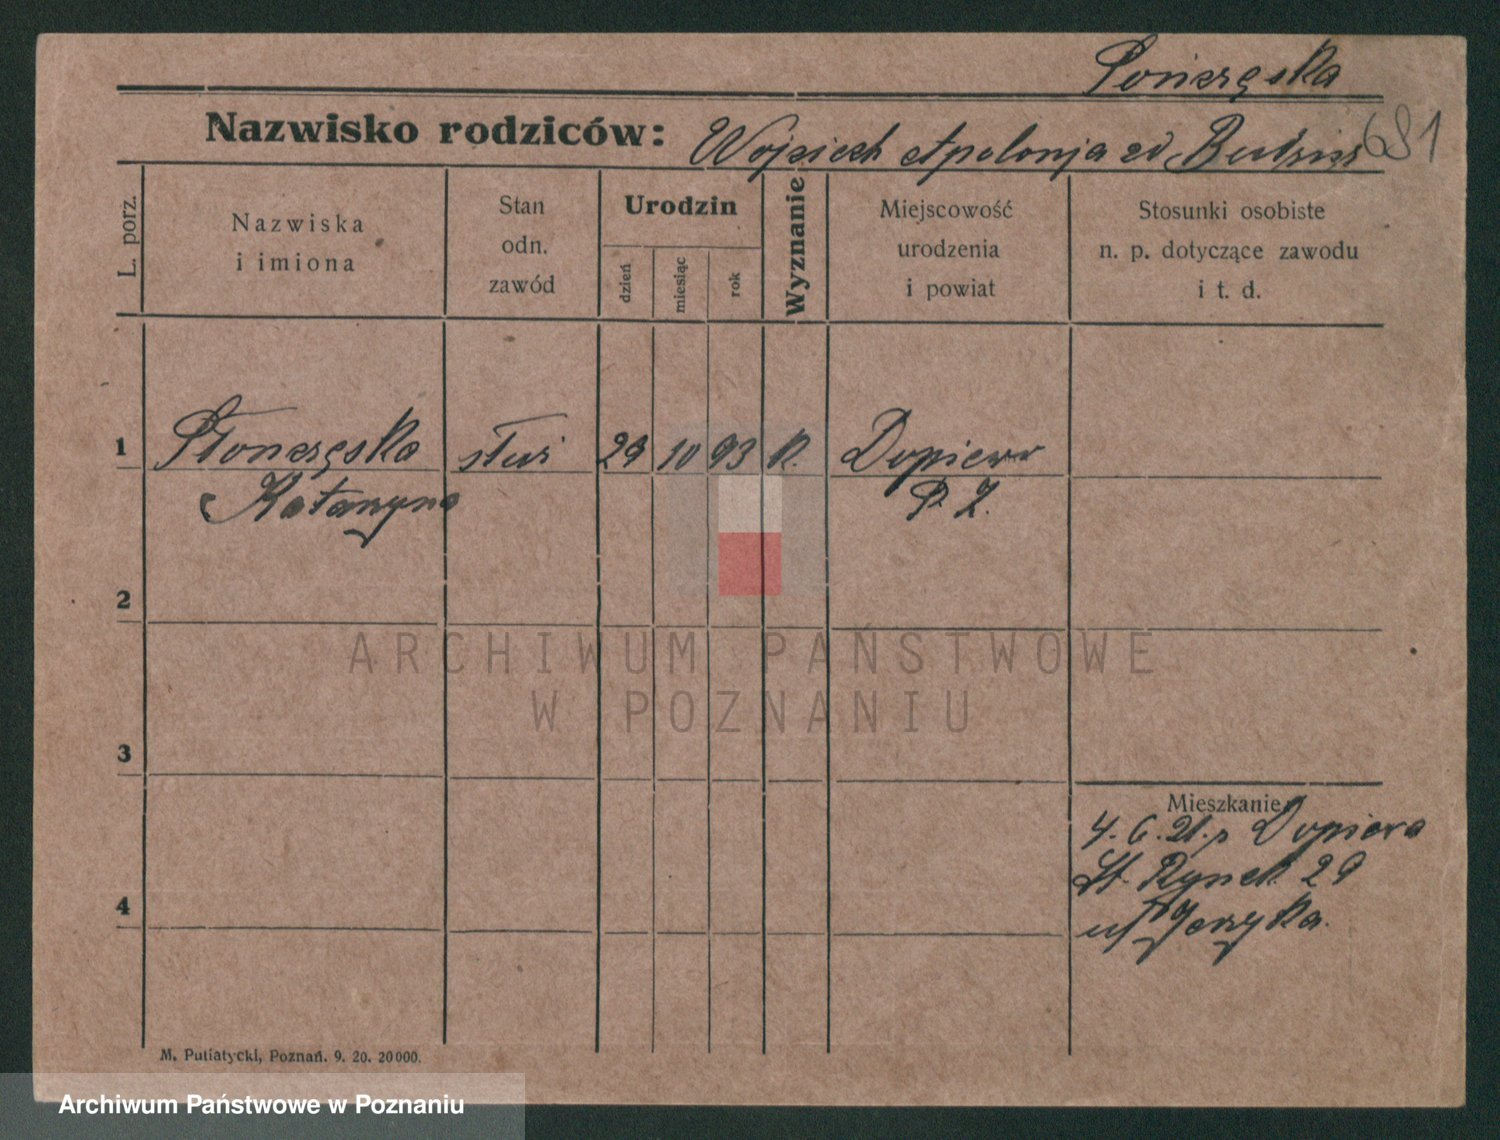 Nazwisko rodziców: Wojciech Apolonja zd
681
L. porz.
Nazwiska i imiona
Stan odn. zawód
Urodzin
dzień
miesiąc
rok
Wyznanie
Miejscowość urodzenia i powiat
Stosunki osobiste n. p. dotyczące zawodu i t. d.
1 29 10 93 K. Dopiewo
Katarzyna P. Z.
2
3
Mieszkanie
4. 6. 21. z Dopiewa
St. Rynek 29
4
u Jerzyka.
M. Putiatycki, Poznań. 9. 20. 20000.
ARCHIWUM PAŃSTWOWE
W POZNANIU
Archiwum Państwowe w Poznaniu